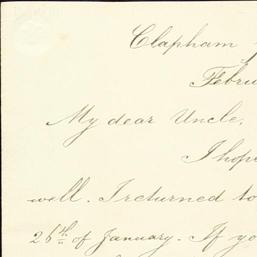 Clapham
Febru
My dear Uncle,
I hope
well. I returned to
26th of January. If yo